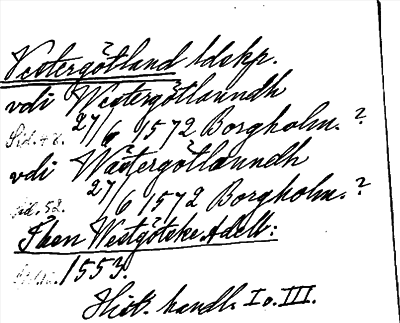 Vestergötland ldskp.
vdi Westergötlanndh
Sid. 48. 27/6 1572 Borgholm. ?
vdi Wästergötlanndh
Sid. 52. 27/6 1572 Borgholm. ?
Then Westgöteske Adell:
1553.
Hist. handl. I o. III.